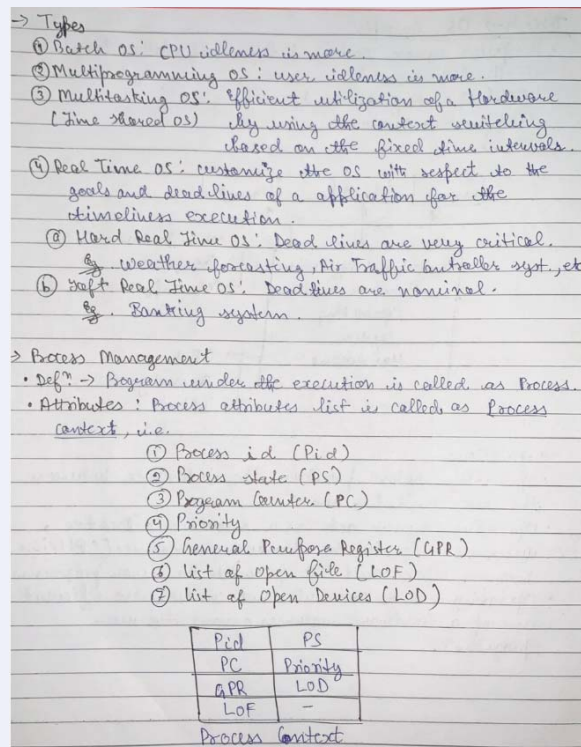 → Types
① Batch OS: CPU idleness is more.
② Multiprogramming OS: user idleness is more.
③ Multitasking OS: Efficient utilization of a Hardware
(Time shared OS) by using the context switching
based on the fixed time intervals.
④ Real Time OS: customize the OS with respect to the
goals and dead lines of a application for the
timeliness execution.
ⓐ Hard Real Time OS: Dead lines are very critical.
Eg. Weather forcasting, Air Traffic Controller syst., etc
ⓑ Soft Real Time OS: Deadlines are nominal.
Eg. Banking system.
→ Process Management
• Defⁿ: → Program under the execution is called as Process.
• Attributes: Process attributes list is called as Process
context, i.e.
① Process id (Pid)
② Process state (PS)
③ Program Counter (PC)
④ Priority
⑤ General Purpose Register (GPR)
⑥ List of Open file (LOF)
⑦ List of Open Devices (LOD)
Pid PS
PC Priority
GPR LOD
LOF –
Process Context